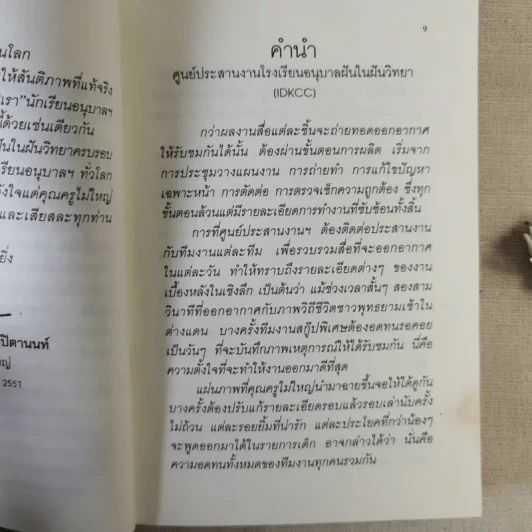 นโลก
ให้สันติภาพที่แท้จริง
เรา"นักเรียนอนุบาลฯ
นี้ด้วยเช่นเดียวกัน
ฝันในฝันวิทยาครบรอบ
เรียนอนุบาลฯ ทั่วโลก
ตั้งใจแด่คุณครูไม่ใหญ่
และเสียสละทุกท่าน
ยิ่ง
ปิตานนท์
ญ่
2551
9
คำนำ
ศูนย์ประสานงานโรงเรียนอนุบาลฝันในฝันวิทยา
(IDKCC)
กว่าผลงานสื่อแต่ละชิ้นจะถ่ายทอดออกอากาศ
ให้รับชมกันได้นั้น ต้องผ่านขั้นตอนการผลิต เริ่มจาก
การประชุมวางแผนงาน การถ่ายทำ การแก้ไขปัญหา
เฉพาะหน้า การตัดต่อ การตรวจเช็กความถูกต้อง ซึ่งทุก
ขั้นตอนล้วนแต่มีรายละเอียดการทำงานที่ซับซ้อนทั้งสิ้น
การที่ศูนย์ประสานงานฯ ต้องติดต่อประสานงาน
กับทีมงานแต่ละทีม เพื่อรวบรวมสื่อที่จะออกอากาศ
ในแต่ละวัน ทำให้ทราบถึงรายละเอียดต่างๆ ของงาน
เบื้องหลังในเชิงลึก เป็นต้นว่า แม้ช่วงเวลาสั้นๆ สองสาม
วินาทีที่ออกอากาศกับภาพวิถีชีวิตชาวพุทธยามเช้าใน
ต่างแดน บางครั้งทีมงานสกู๊ปพิเศษต้องอดทนรอคอย
เป็นวันๆ ที่จะบันทึกภาพเหตุการณ์ให้ได้รับชมกัน นี่คือ
ความตั้งใจที่จะทำให้งานออกมาดีที่สุด
แผ่นภาพที่คุณครูไม่ใหญ่นำมาฉายขึ้นจอให้ได้ดูกัน
บางครั้งต้องปรับแก้รายละเอียดรอบแล้วรอบเล่านับครั้ง
ไม่ถ้วน แต่ละรอยยิ้มที่น่ารัก แต่ละประโยคที่กว่าน้องๆ
จะพูดออกมาได้ในรายการเด็ก อาจกล่าวได้ว่า นั่นคือ
ความอดทนทั้งหมดของทีมงานทุกคนรวมกัน